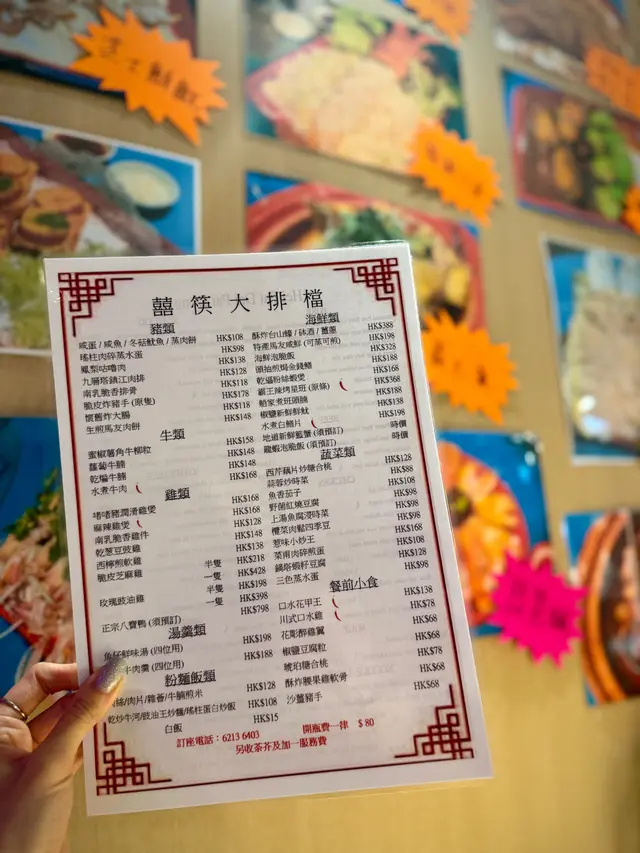 囍筷大排檔
豬類
咸蛋 / 咸魚 / 冬菇魷魚 / 蒸肉餅 HK$108
瑤柱肉碎蒸水蛋 HK$98
鳳梨咕嚕肉 HK$138
九層塔鎮江肉排 HK$128
南乳脆香排骨 HK$118
脆皮炸豬手 (原隻) HK$178
懷舊炸大腸 HK$118
生煎馬友肉餅 HK$148
牛類
蜜椒薯角牛柳粒 HK$158
蘿蔔牛腩 HK$148
乾煸牛腩 HK$148
水煮牛肉 HK$168
雞類
啫啫豬潤滑雞煲 HK$168
麻辣雞煲 HK$168
南乳脆香雞件 HK$128
乾葱豆豉雞 HK$148
西檸煎軟雞 HK$138
脆皮芝麻雞 半隻 HK$218
一隻 HK$428
玫瑰豉油雞 半隻 HK$198
一隻 HK$398
正宗八寶鴨 (須預訂) HK$798
湯羹類
魚仔鮮味湯 (四位用) HK$198
牛肉羹 (四位用) HK$188
粉麵飯類
絲/肉片/雜薈/牛腩煎米 HK$128
乾炒牛河/豉油王炒麵/瑤柱蛋白炒飯 HK$108
白飯 HK$15
海鮮類
酥炸台山蠔 / 砵酒 / 薑蔥 HK$388
特產馬友咸鮮 (可蒸可煎) HK$198
海鮮泡脆飯 HK$328
頭抽煎焗金錢鱔 HK$188
乾逼粉絲蝦煲 HK$168
霸王辣烤星班 (原條) HK$368
船家煮班頭腩 HK$188
椒鹽新鮮鮮魷 HK$138
水煮白鱔片 HK$198
地道新鮮藍蟹 (須預訂) 時價
龍蝦泡脆飯 (須預訂) 時價
蔬菜類
西芹藕片炒糖合桃 HK$128
蒜蓉炒時菜 HK$88
魚香茄子 HK$108
野菌紅燒豆腐 HK$98
上湯魚腐浸時菜 HK$98
欖菜肉鬆四季豆 HK$98
惹味小炒王 HK$168
菜甫肉碎煎蛋 HK$108
鍋塔蝦籽豆腐 HK$128
三色蒸水蛋 HK$98
餐前小食
口水花甲王 HK$138
川式口水雞 HK$78
花彫醉雞翼 HK$68
椒鹽豆腐粒 HK$68
琥珀糖合桃 HK$78
酥炸腰果雞軟骨 HK$68
沙薑豬手 HK$68
訂座電話：6213 6403 開瓶費一律 $ 80
另收茶芥及加一服務費